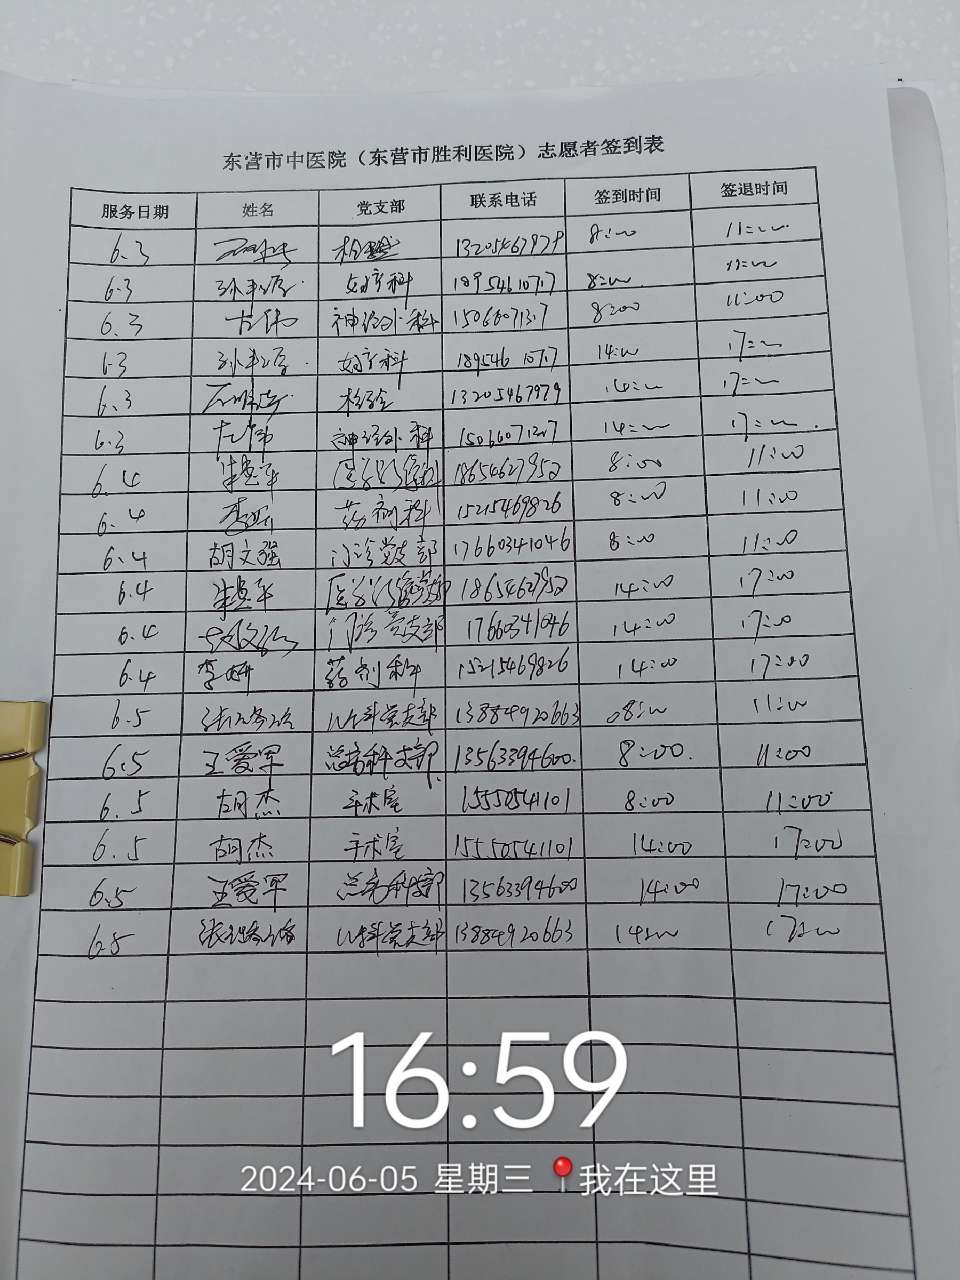 东营市中医院（东营市胜利医院）志愿者签到表
服务日期 姓名 党支部 联系电话 签到时间 签退时间
6.3 检验 13205467979 8:00 11:00
6.3 妇产科 18954610717 8:00 11:00
6.3 神经外科 8:00 11:00
6.3 妇产科 18954610717 14:00 17:00
6.3 检验 13205467979 14:00 17:00
6.3 神经外科 14:00 17:00
6.4 朱慧平 18654627952 8:00 11:00
6.4 李妍 药剂科 15215469826 8:00 11:00
6.4 胡文强 门诊党支部 17660341046 8:00 11:00
6.4 朱慧平 18654627952 14:00 17:00
6.4 门诊党支部 17660341046 14:00 17:00
6.4 李妍 药剂科 15215469826 14:00 17:00
6.5 儿科党支部 13884920663 08:00 11:00
6.5 王爱军 13563394600 8:00 11:00
6.5 胡杰 手术室 15550541101 8:00 11:00
6.5 胡杰 手术室 15550541101 14:00 17:00
6.5 王爱军 13563394600 14:00 17:00
6.5 儿科党支部 13884920663 14:00 17:00
16:59
2024-06-05 星期三 我在这里